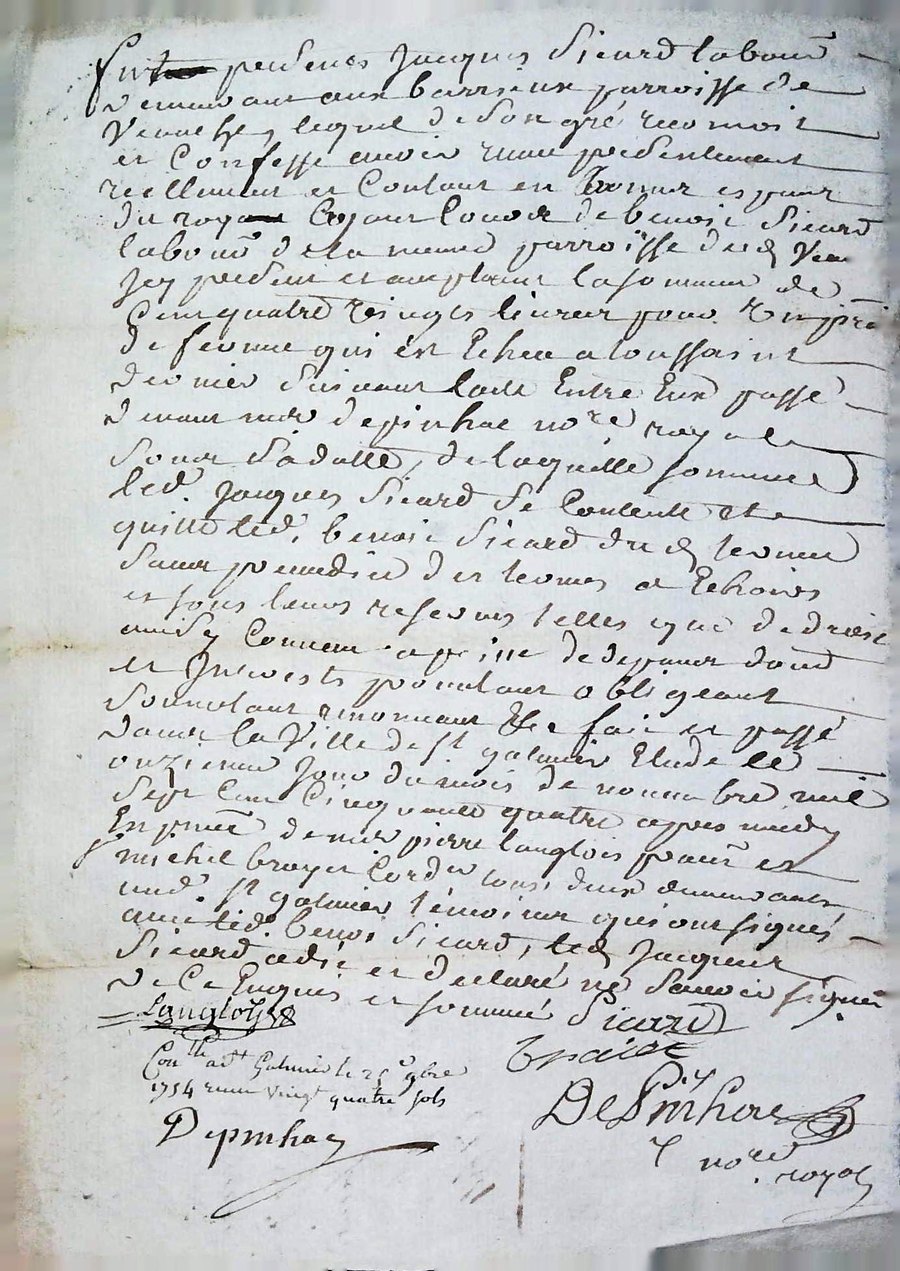 Fut présent Jacques Sicard labour
demeurant aux barrieux parroisse de
Veauche, lequel de son gré reconnoit
et Confesse avoir reçeu presentement
reellement et Contant en
du roy Cejourd'huy de benoit Sicard
labour de la meme parroisse dud Veau
Icy present et acceptant la somme de
Cent quatre vingts livres pour
de ferme qui est Echeu a toussaint
dernier suivant l'acte Entre Eux passé
devant me depinhac nore royal
sous sa datte, de laquelle somme
led. Jacques Sicard se Contente et
quitte led. benoit Sicard dud terme
sans prejudice des termes a Echoirs
et sous leurs reserves telles que de droit
ainsy Convenu a peine de depens domd
et Interests promettant obligeant
soumettant renonceant &c fait et passé
dans la Ville de st galmier Etude le
onzieme jour du mois de novembre mil
sept Cent Cinquante quatre apres midy
En pnce de me pierre langlois et
michel broyer Cordr tous deux demeurants
aud st galmier témoins qui ont signés
avec led. benoit Sicard, led Jacques
Sicard a dit et declaré ne scavoir signer
de Ce Enquis et sommé Sicard
Langlois
Conllé a st Galmier le 9bre
1754 reçu vingt quatre sols
Depinhac
Depinhac
nore royal